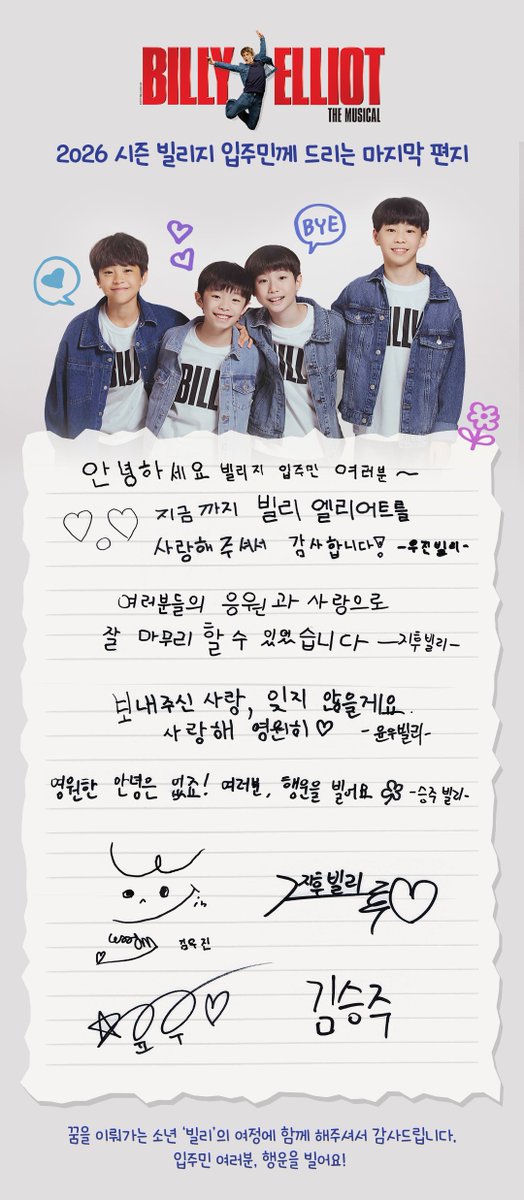 BILLY ELLIOT
THE MUSICAL
2026 시즌 빌리지 입주민께 드리는 마지막 편지
BYE
BILLY
BILLY
BILLY
BILLY
안녕하세요 빌리지 입주민 여러분~
지금까지 빌리 엘리어트를
사랑해 주셔서 감사합니다! -우진빌리-
여러분들의 응원과 사랑으로
잘 마무리 할 수 있었습니다 -지후빌리-
보내주신 사랑, 잊지 않을게요.
사랑해 영원히♡ -윤우빌리-
영원한 안녕은 없죠! 여러분, 행운을 빌어요 -승주빌리-
woojin
김우진
지후빌리
윤우
김승주
꿈을 이뤄가는 소년 ‘빌리’의 여정에 함께 해주셔서 감사드립니다.
입주민 여러분, 행운을 빌어요!